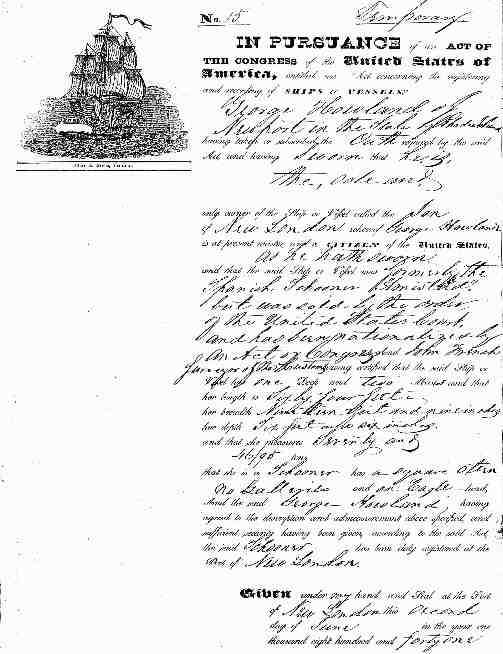 No. 15 Temporary
IN PURSUANCE of an ACT OF
THE CONGRESS of the United States of
America, entitled an Act concerning the registering
and recording of SHIPS or VESSELS,
George Howland of
Newport in the State of Rhode Island
having taken or subscribed the Oath required by the said
Act, and having sworn that he is
the, sole and
only owner of the Ship or Vessel called the Ion
of New London whereof George Howland
is at present master, and a CITIZEN of the United States,
As he hath sworn
and that the said Ship or Vessel was formerly the
Spanish Schooner Amistad
but was sold by the order
of the United States Court
and has been nationalized by
An Act of Congress and John French
Surveyor of the having certified that the said Ship or
Vessel has one Deck and two Masts and that
her length is Sixty four feet
her breadth Nineteen feet and nine inches
her depth Six feet six inches
and that she measures Seventy and
46/95 tons
that she is a Schooner has a square stern
No Galleries and an Eagle head,
And the said George Howland having
agreed to the description and admeasurement above specified, and
sufficient security having been given, according to the said Act,
the said Schooner has been duly registered at the
Port of New London.
Given under my hand and Seal at the Port
of New London this second
day of June in the year one
thousand eight hundred and forty one